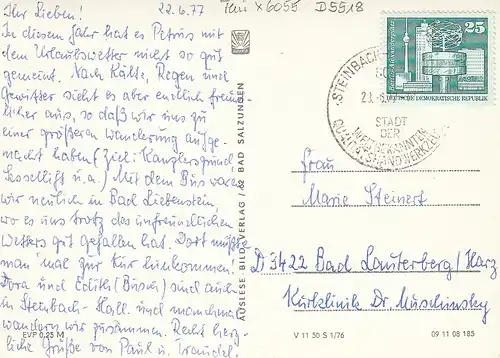 22.6.77 X 6055 D5518
Ihr Lieben!
In diesem Jahr hat es Petrus mit
dem Urlaubswetter nicht so gut
gemeint. Nach Kälte, Regen und
Gewitter sieht es aber endlich freund
licher aus, so daß wir uns zu
einer größeren Wanderung aufge-
macht haben (Ziel: Kanzlersgrund,
u.a.) Mit dem Bus waren
wir neulich in Bad Liebenstein,
wo es uns trotz des unfreundlichen
Wetters gut gefallen hat. Dort müßte
man mal zur Kur hinkommen!
Dora und Edith (Busch) sind auch
in Steinbach-Hall. und manchmal
wandern wir zusammen. Recht herz-
liche Grüße von Paul u. Traudel!
EVP 0,25 M
AUSLESE-BILD-VERLAG / 62 BAD SALZUNGEN
25
DEUTSCHE DEMOKRATISCHE REPUBLIK
STEINBACH
STADT
DER
WELTBEKANNTEN
Frau
Marie Steinert
D 3422 Bad Lauterberg/Harz
Kurklinik Dr. Muschinsky
V 11 50 S 1/76
09 11 08 185